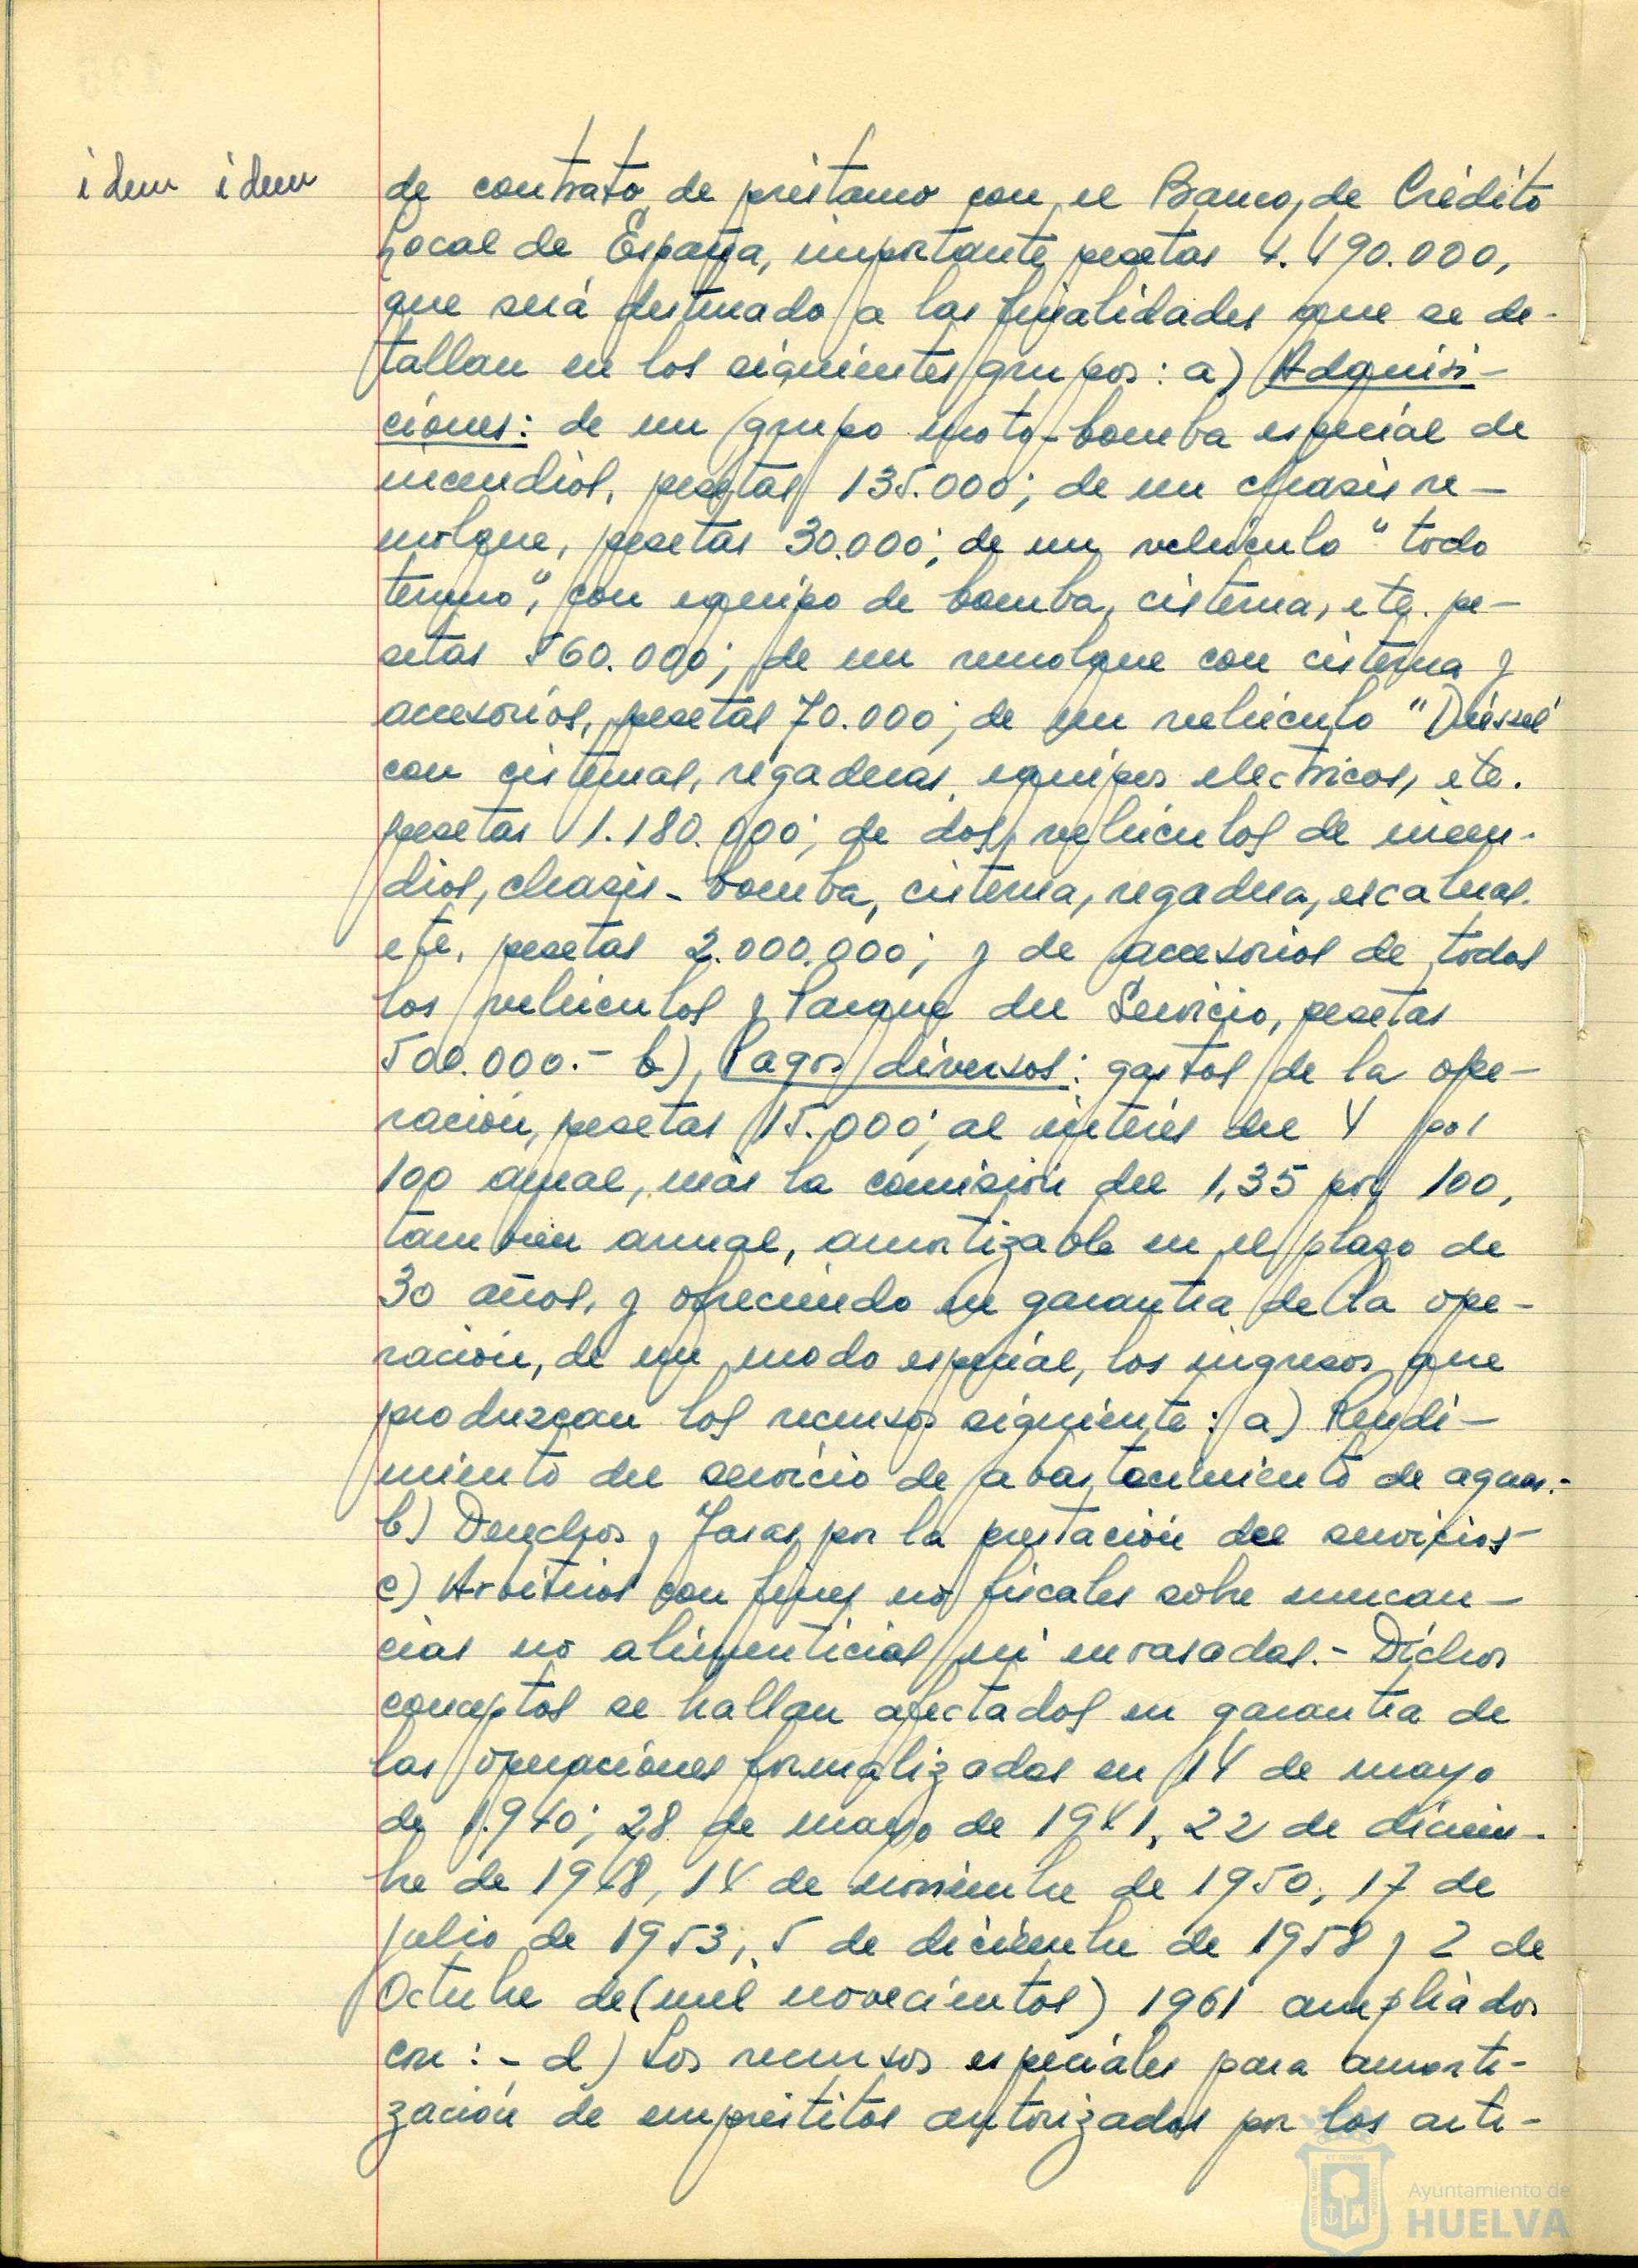 idem idem
de contrato de préstamo con el Banco de Crédito
Local de España, importante pesetas 4.490.000,
que será destinado a las finalidades que se de-
tallan en los siguientes grupos: a) Adquisi-
ciones: de un grupo moto-bomba especial de
incendios, pesetas 135.000; de un chasis re-
molque, pesetas 30.000; de un vehículo "todo
terreno", con equipo de bomba, cisterna, etc. pe-
setas 560.000; de un remolque con cisterna y
accesorios, pesetas 70.000; de un vehículo "Diéssel"
con cisternas, regaderas, equipos electricos, etc.
pesetas 1.180.000; de dos vehículos de incen-
dios, chasis-bomba, cisterna, regadera, escaleras.
etc. pesetas 2.000.000; y de accesorios de todos
los vehículos y Parque del Servicio, pesetas
500.000.- b), Pagos diversos: gastos de la ope-
ración, pesetas 15.000; al interés del 4 por
100 anual, más la comisión del 1,35 por 100,
tambien anual, amortizable en el plazo de
30 años, y ofreciendo en garantia de la ope-
ración, de un modo especial, los ingresos que
produzcan los recursos siguiente: a) Rendi-
miento del servicio de abastecimiento de aguas.-
b) Derechos y Tasas por la prestación del servicios-
c) Arbitrios con fines no fiscales sobre mercan-
cías no alimenticias ni envasadas.- Dichos
conceptos se hallan afectados en garantia de
las operaciones formalizadas en 14 de mayo
de 1.940; 28 de mayo de 1941, 22 de diciem-
bre de 1948, 14 de noviembre de 1950, 17 de
julio de 1953, 5 de diciembre de 1958 y 2 de
Octubre de (mil novecientos) 1961 ampliados
con:- d) Los recursos especiales para amorti-
zación de empréstitos autorizados por los artí-
Ayuntamiento de
HUELVA